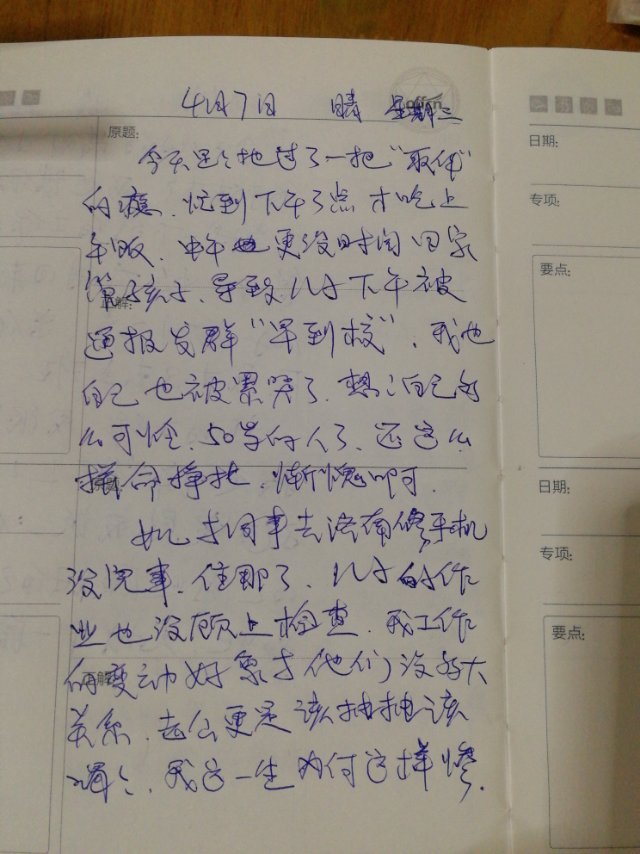 4月7日 晴 星期三
原题:
今天是狠地过了一把“取件”
的瘾、忙到下午3点才吃上
午饭、中午也更没时间回家
管孩子、导致儿子下午被
通报发群“早到校”，我也
自己也被累哭了、想想自己多
么可怜、50岁的人了、还这么
拼命挣扎、惭愧啊。
她才同事去济南修手机
没完事、住那了、儿子的作
业也没顾上检查、我工作
的变动好象才他们没多大
关系、老公更是该抽抽该
喝喝、我这一生为何这样惨。
日期:
专项:
要点:
日期:
专项:
要点: